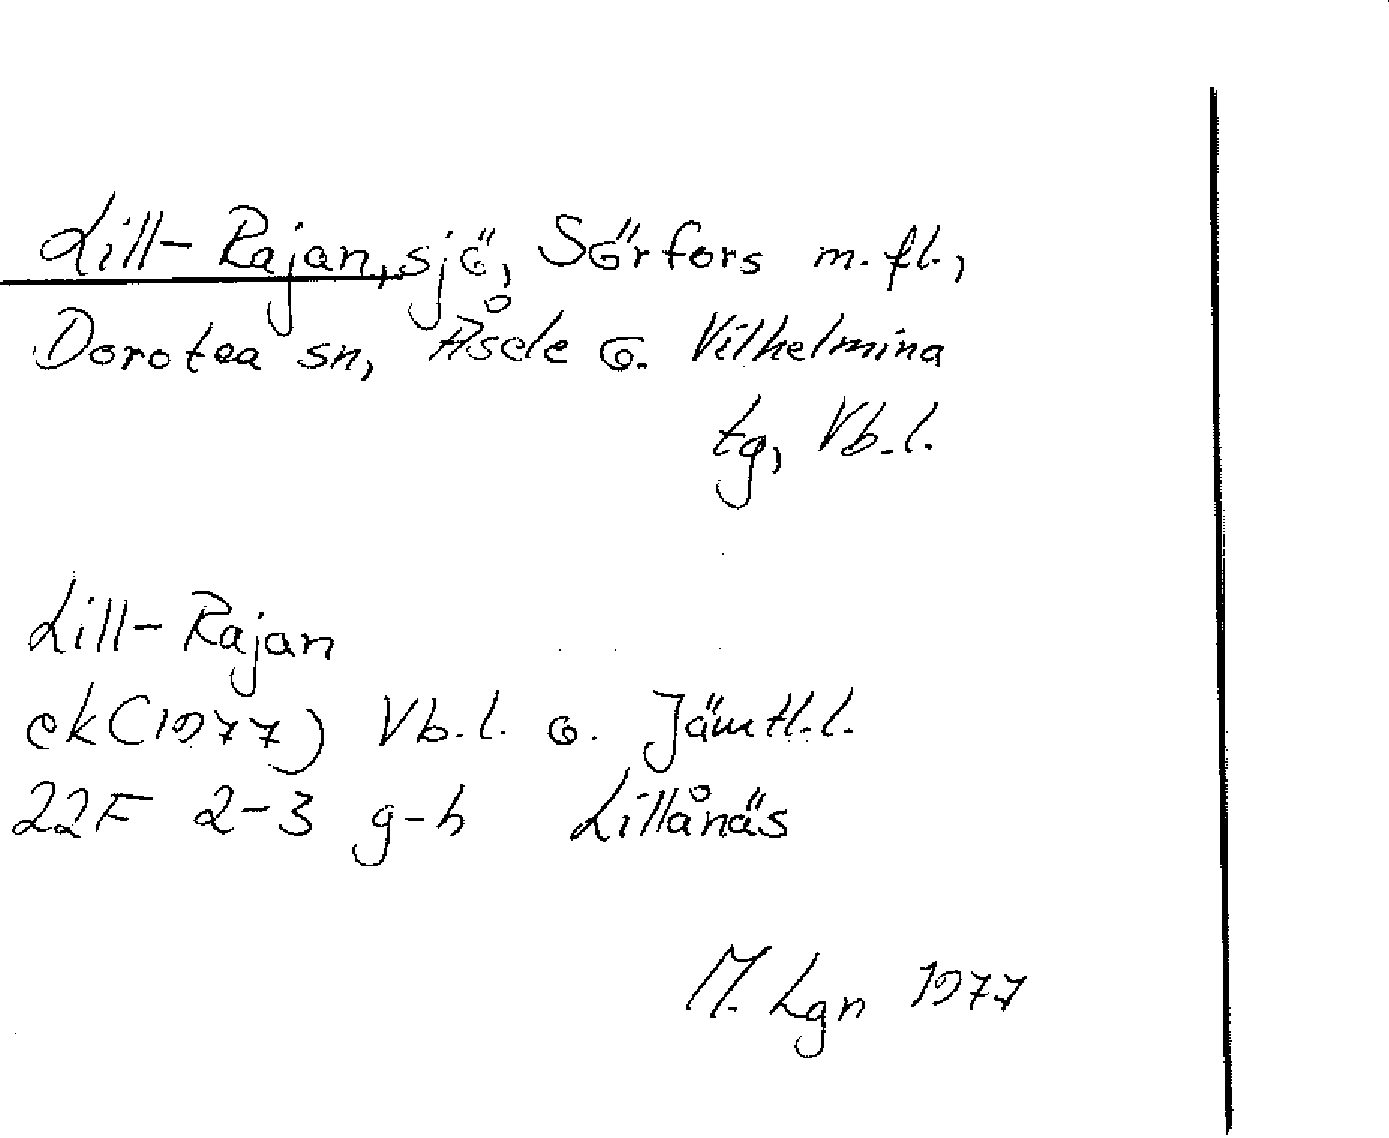 Lill-Rajan, sjö, Sörfors m.fl.,
Dorotea sn, Åsele o. Vilhelmina
tg, Vb.l.
Lill-Rajan
ek (1977) Vb.l. o. Jämtl.l.
22F 2-3 g-h Lillånäs
M. Lgn 1977